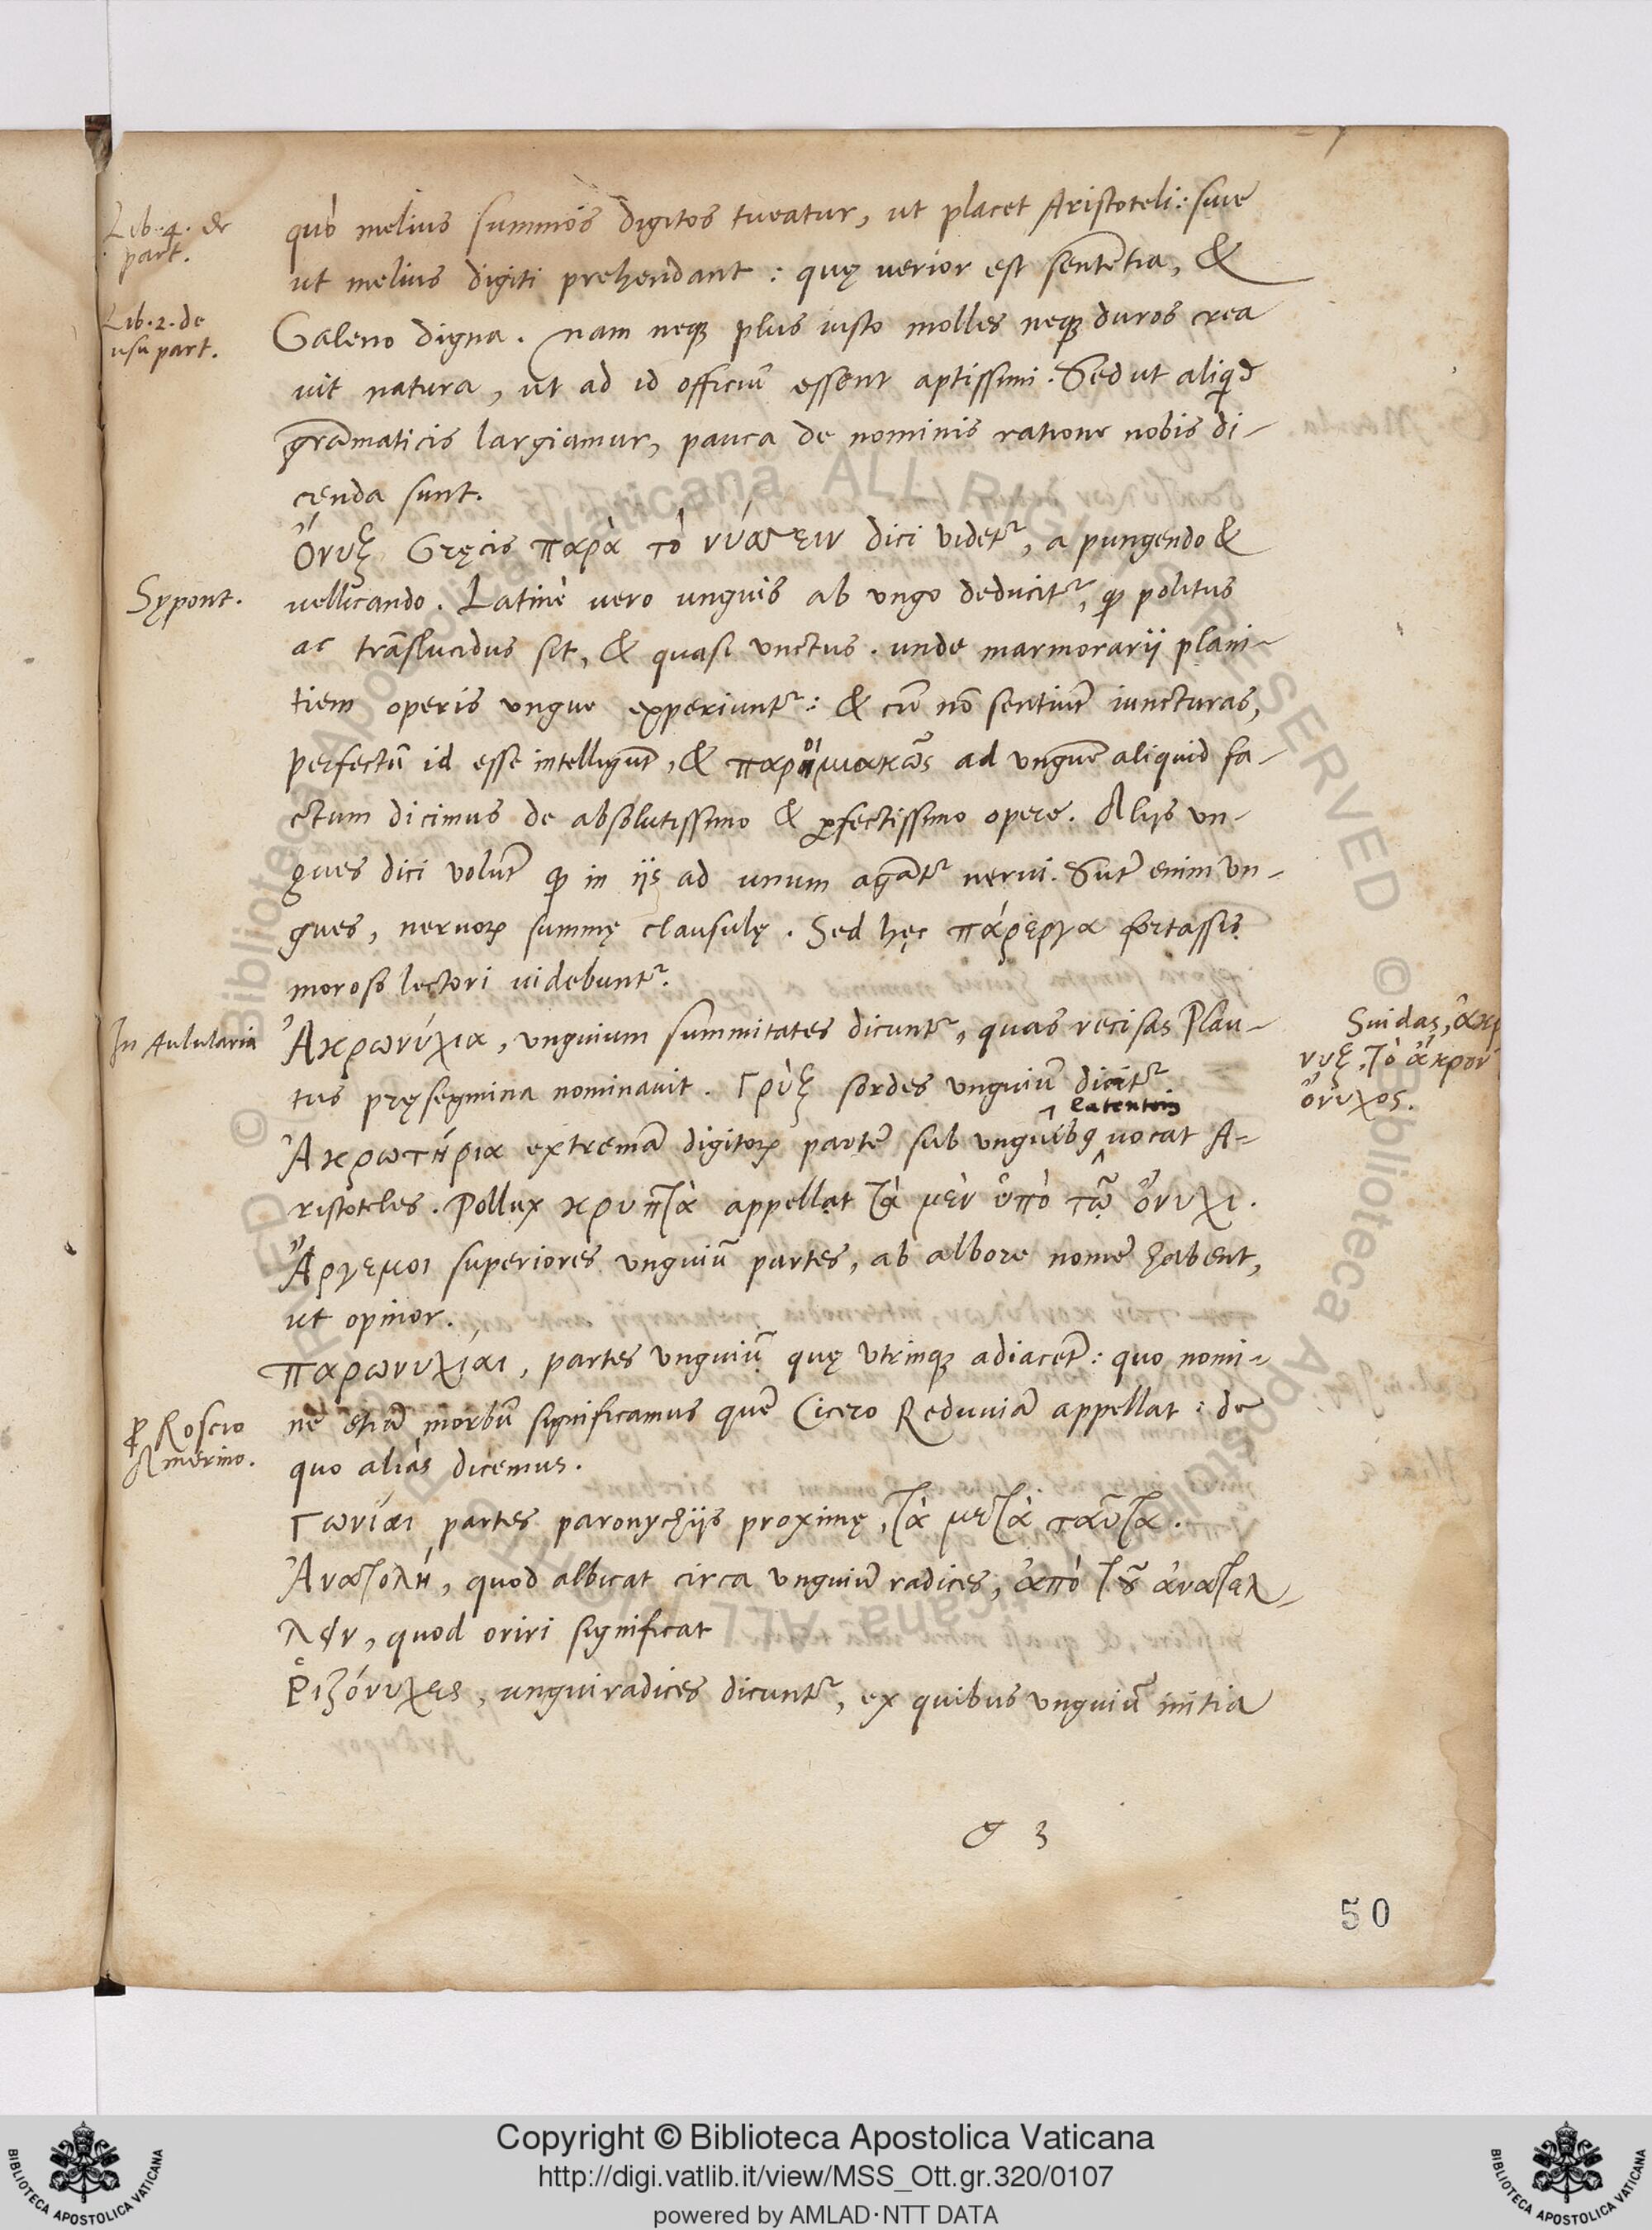 Lib. 4. de
part.
quò melius summos digitos tueatur, ut placet Aristoteli: siue
ut melius digiti prehendant: quę uerior est sententia, &
Lib. 2. de
usu part.
Galeno digna. nam neq; plus iusto molles neq; duros crea
uit natura, ut ad id officiū essent aptissimi. Sed ut aliqd
grāmaticis largiamur, pauca de nominis ratione nobis di-
cenda sunt.
Ὄνυξ Gręcis παρὰ τὸ νύσσειν dici videtr, a pungendo &
Sypont.
uellicando. Latinè uero unguis ab ungo deducitr, qd politus
ac trāslucidus sit, & quasi unctus. unde marmorarij plani-
tiem operis ungue experiuntr: & cū nō sentiūt iuncturas,
perfectū id esse intelligūt, & παροιμιακῶς ad unguē aliquid fa-
ctum dicimus de absolutissimo & pfectissimo opere. Alijs un-
gues dici volūt qd in ijs ad unum agātr nerui. Sūt enim un-
gues, neruorū summę clausulę. Sed hęc πάρεργα fortassis
moroso lectori uidebuntr.
In Aulularia
Ἀκρωνύχια, unguium summitates dicuntr, quas recisas Plau-
tus pręsegmina nominauit. Γρὺξ sordes unguiū dicitr.
Suidas, ἄκρ
νυξ, τὸ ἄκρον
ὄνυχος.
latentem
Ἀκρωτήρια extremā digitorū partē sub unguibq uocat A-
ristoteles. Pollux κρυπτὰ appellat τὰ μὲν ὑπὸ τῷ ὄνυχι.
Ἄργεμοι superiores unguiū partes, ab albore nomē habent,
ut opinor.
παρωνυχίαι, partes unguiū quę utrinq; adiacēt: quo nomi-
ne etiā morbū significamus quē Cicero Reduuiā appellat: de
p Roscio
Amerino.
quo aliàs dicemus.
Γωνίαι partes paronychijs proximę, τὰ μετὰ ταῦτα.
Ἀνατολή, quod albicat circa unguiū radices, ἀπὸ τοῦ ἀνατελ-
λειν, quod oriri significat
Ῥιζόνυχες, unguiradices dicuntr, ex quibus unguiū initia
g 3
50
Copyright © Biblioteca Apostolica Vaticana
http://digi.vatlib.it/view/MSS_Ott.gr.320/0107
powered by AMLAD·NTT DATA
BIBLIOTECA APOSTOLICA VATICANA
BIBLIOTECA APOSTOLICA VATICANA